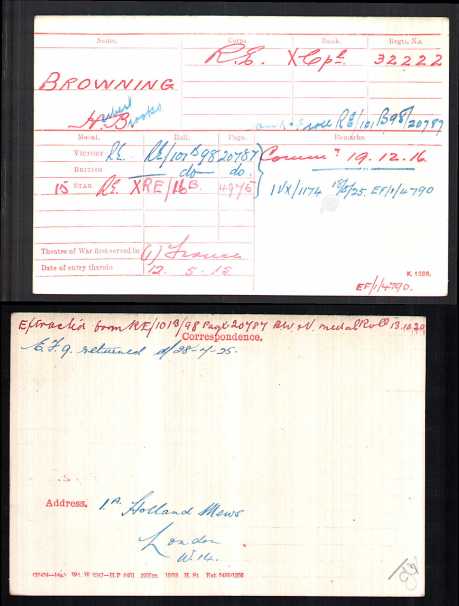 Name. Corps. Rank. Regtl. No.
R.E. X Cpl. 32222
BROWNING
Herbert
H. Brooks
roll RE/101 B98/20787
Medal. Roll. Page. Remarks.
VICTORY R.E. RE/101 B98 20787 Comm n 19.12.16
BRITISH do do.
15 STAR R.E. XRE/16B. 497B IVX/1174 EF/1/4790
Theatre of War first served in (1) France
Date of entry therein 12. 5. 15
K. 1380.
EF/1/4790.
Extracted from RE/101B/98 Page 20787 BW & V. medal Roll
Correspondence.
E.F.9. returned d/28-4-25.
Address. 1A. Holland Mews
London
W.14.